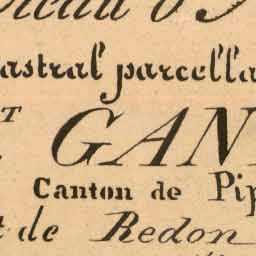 astral parcella
T GAN
Canton de Pip
t de Redon